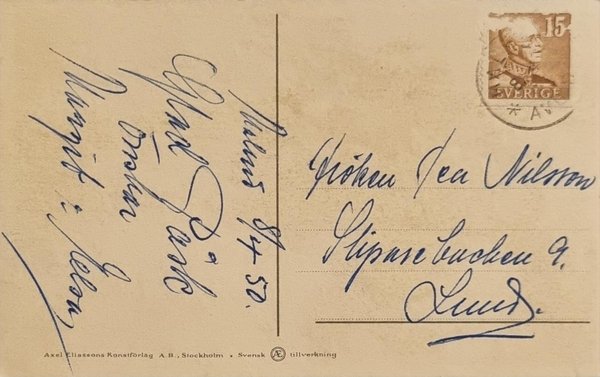 Malmö 8/4 50.
Glad Påsk
önskar
Margit
15
SVERIGE
Fröken Tea Nilsson
Slipareбacken 9.
Lund.
Axel Eliassons Konstförlag A.B., Stockholm • Svensk Æ tillverkning